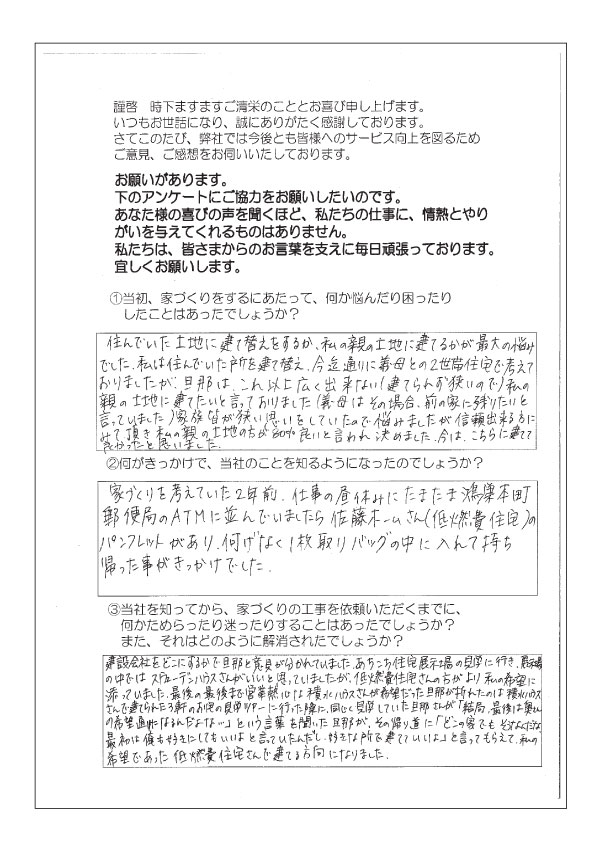 謹啓　時下ますますご清栄のこととお喜び申し上げます。
いつもお世話になり、誠にありがたく感謝しております。
さてこのたび、弊社では今後とも皆様へのサービス向上を図るため
ご意見、ご感想をお伺いいたしております。
お願いがあります。
下のアンケートにご協力をお願いしたいのです。
あなた様の喜びの声を聞くほど、私たちの仕事に、情熱とやり
がいを与えてくれるものはありません。
私たちは、皆さまからのお言葉を支えに毎日頑張っております。
宜しくお願いします。
①当初、家づくりをするにあたって、何か悩んだり困ったり
したことはあったでしょうか？
住んでいた土地に建て替えをするか、私の親の土地に建てるかが最大の悩み
でした。私は住んでいた所を建て替え、今迄通りに義母との2世帯住宅で考えて
おりましたが、旦那は、これ以上広く出来ない(建てられず狭いので)私の
親の土地に建てたいと言っておりました(義母はその場合、前の家に残りたいと
言っていました)家族皆が狭い思いをしていたので悩みましたが信頼出来る方に
みて頂き私の親の土地の方が80%良いと言われ決めました。今は、こちらに建てて
良かったと思いました。
②何がきっかけで、当社のことを知るようになったのでしょうか？
家づくりを考えていた2年前、仕事の昼休みにたまたま鴻巣本町
郵便局のATMに並んでいましたら佐藤ホームさん(低燃費住宅)の
パンフレットがあり、何げなく1枚取りバッグの中に入れて持ち
帰った事がきっかけでした。
③当社を知ってから、家づくりの工事を依頼いただくまでに、
何かためらったり迷ったりすることはあったでしょうか？
また、それはどのように解消されたでしょうか？
建設会社をどこにするかで旦那と意見が分かれていました。あちこち住宅展示場の見学に行き、展示場
の中ではスウェーデンハウスさんがいいと思っていましたが、低燃費住宅さんの方がより私の希望に
添っていました。最後の最後まで営業熱心な積水ハウスさんが希望だった旦那が折れたのは積水ハウス
さんで建てられた3軒のお宅の見学ツアーに行った際に、同じく見学していた旦那さんが「結局、最後は奥さん
の希望通りになるんだよな…」という言葉を聞いた旦那が、その帰り道に「どこの家でもそうなんだな
最初は俺も好きにしてもいいよと言っていたんだし、好きな所で建てていいよ」と言ってもらえて、私の
希望であった低燃費住宅さんで建てる方向になりました。